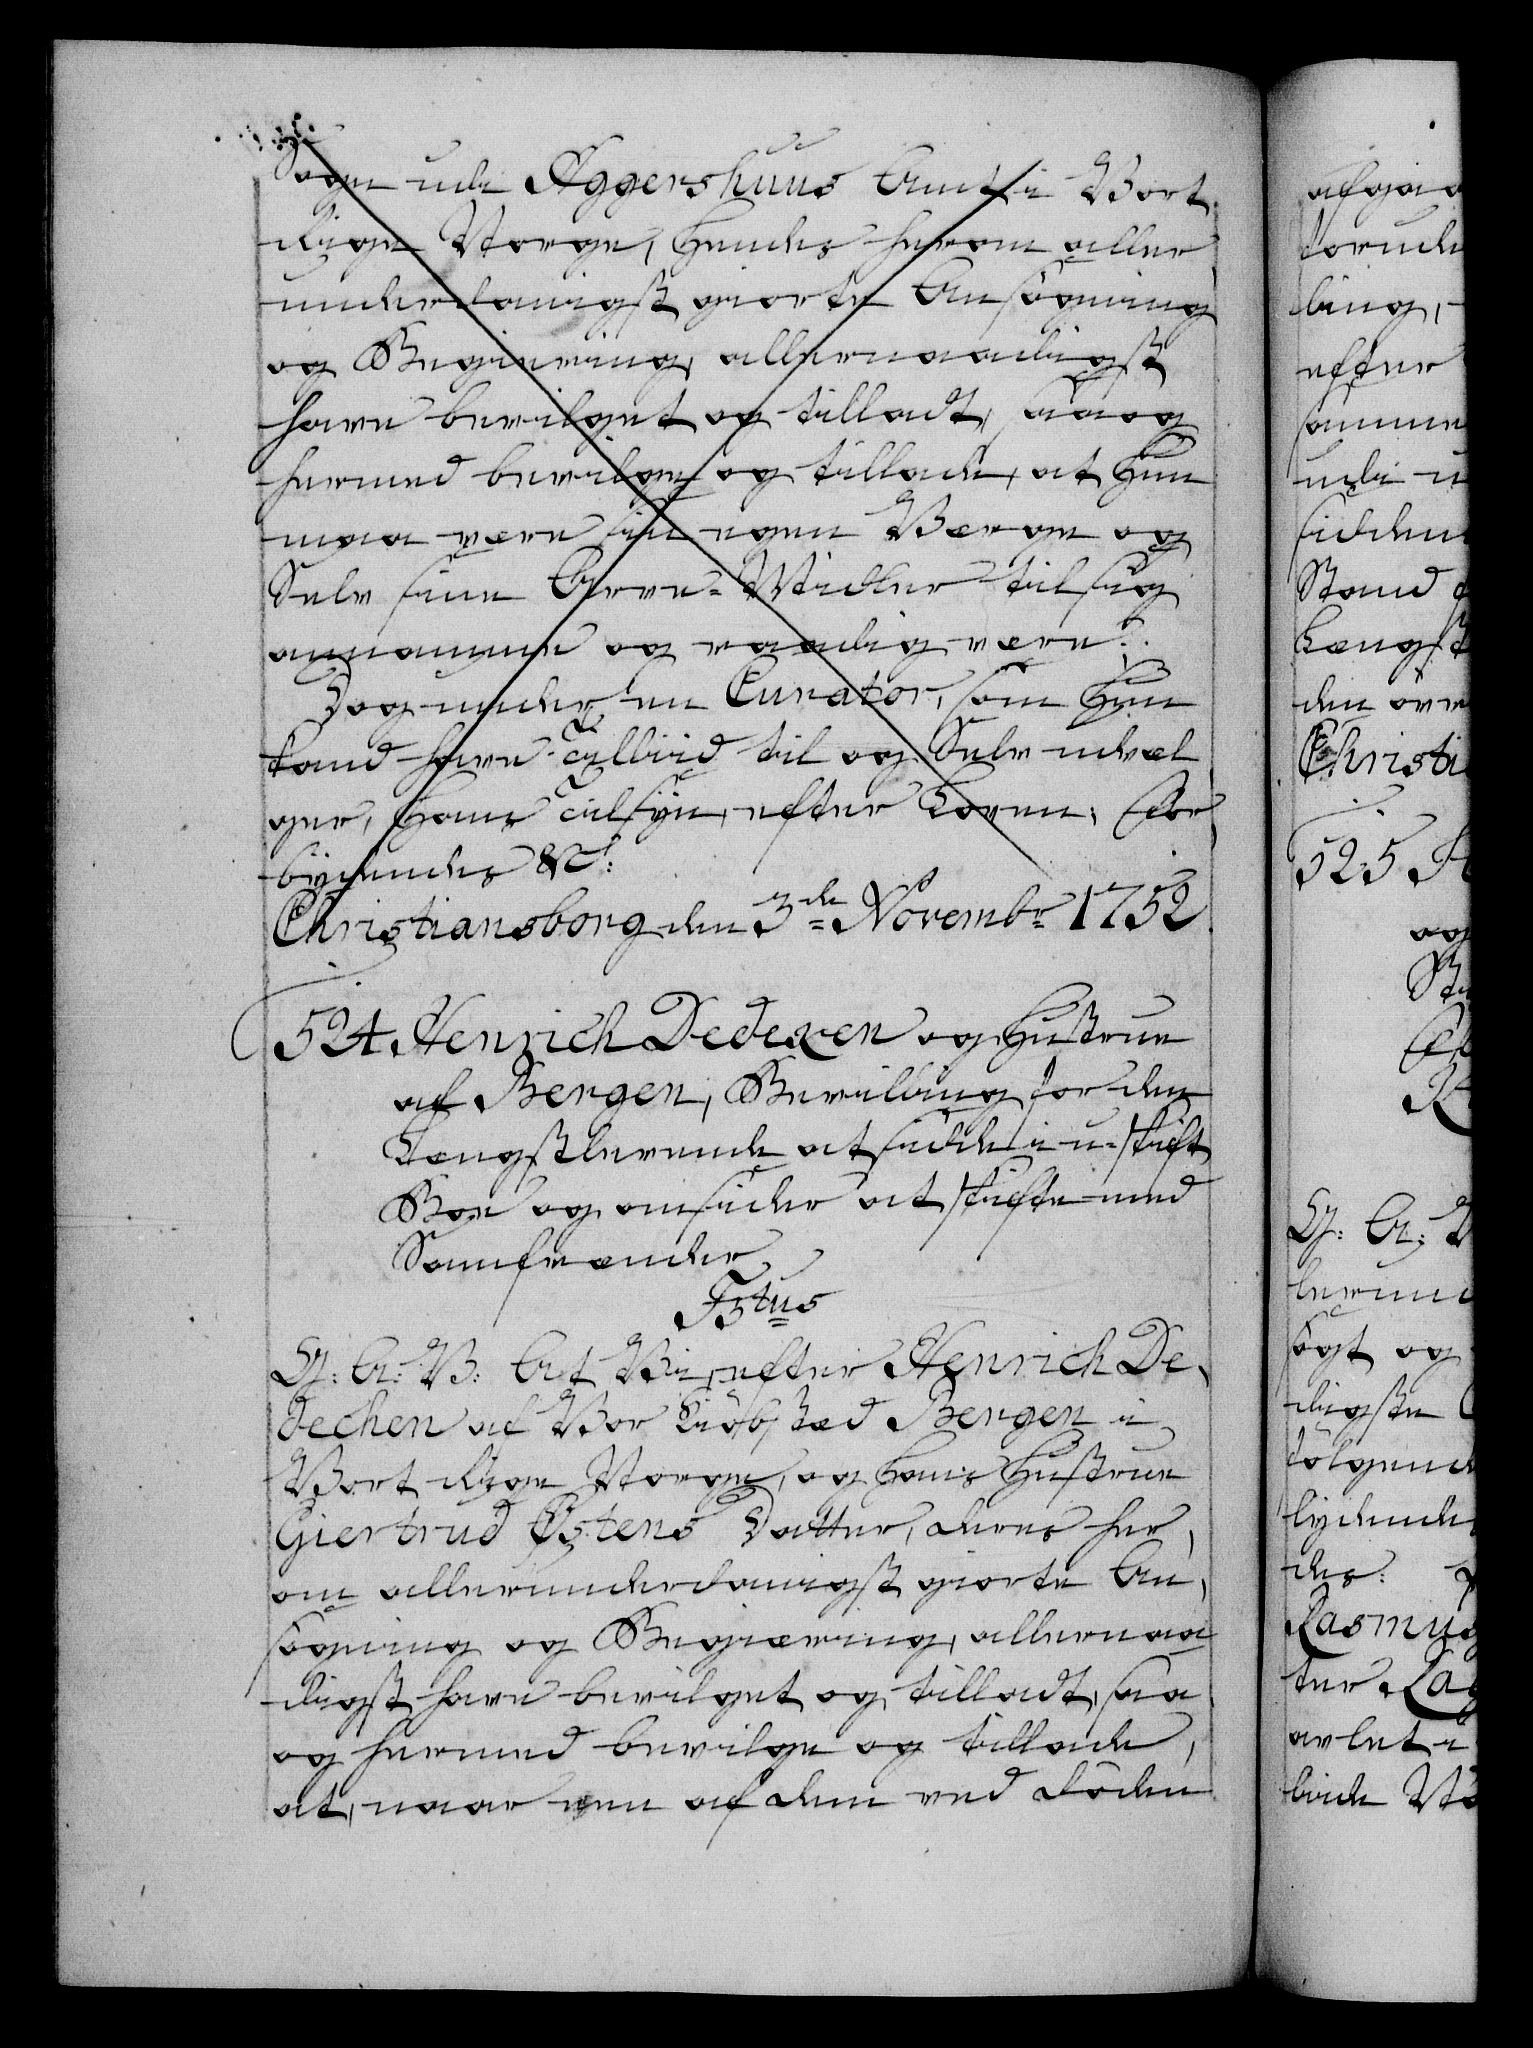 Sogn udi Aggershuus Amt i Vort
Rige Norge, hendes herom aller
underdanigst giorte Ansøgning
og Begiering, allernaadigst
have bevilget og tilladt, saa og
hermed bevilge og tillade, at hun
maa være sin egen Værge og
Selv sine Arve-Midler til sig
annamme og raadig være.
Dog under en Curator, som hun
kand have Tilliid til og Selv udvæl
ger, hans Tilsyn, efter Loven. For
bydendes &c:
Christiansborg den 3de Novembr 1752.
524. Henrich Dedexen og Hustrue
af Bergen, Bevilling for den
Længstlevende at sidde i u-skift
Boe og omsider at skifte med
Samfrænder
Fstus
G: A: V: At Vi, efter Henrich De,
dechen af Vor Kiøbsted Bergen i
Vort Rige Norge, og hans Hustrue
Giertrud Østens Datter, deres her,
om allerunderdanigst giorte An,
søgning og Begiæring, allernaa
digst have bevilget og tilladt, saa
og hermed bevilge og tillade,
at, naar een af dem ved Døden
afgaa
forund
ling,
efter
samme
udi u
sidden
Stand
Længst
den øve
Christi
525 H
og
G: A: V
levend
søgt og
digste
følgend
lydende
des:
Rasmus
ter Lag
avlet